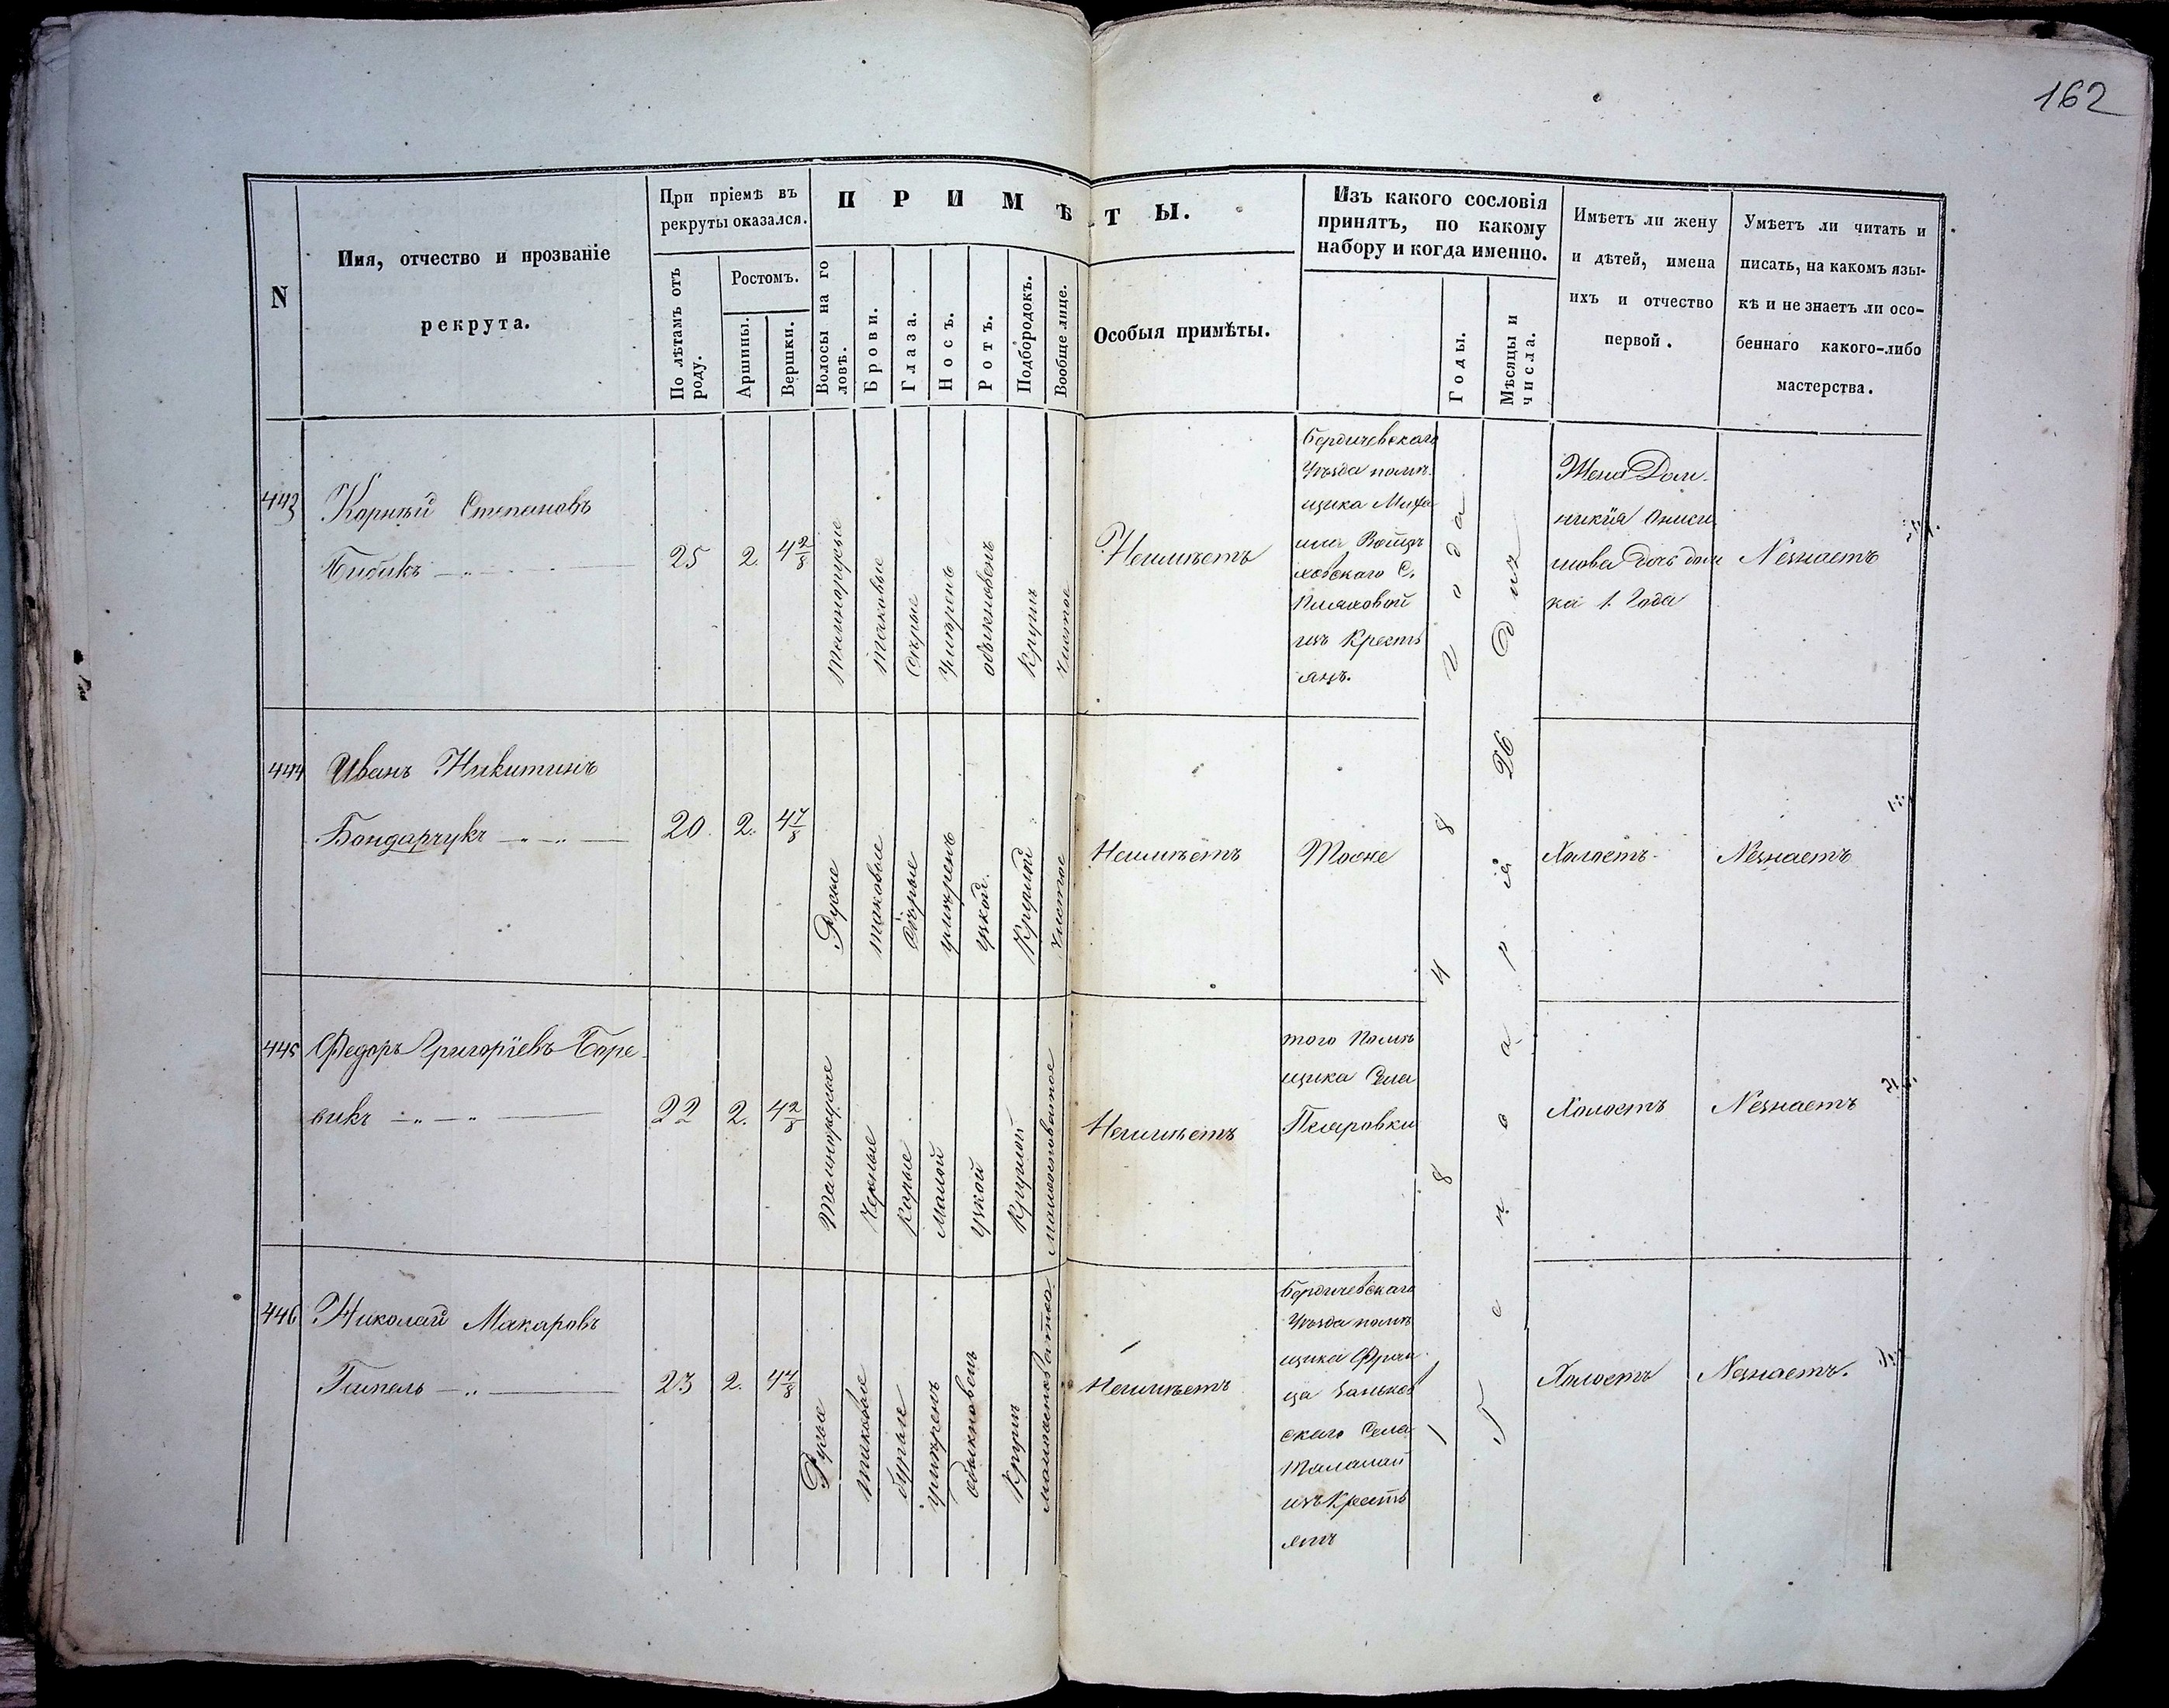 162
N
Имя, отчество и прозваніе
рекрута.
При пріемѣ въ
рекруты оказался.
По лѣтамъ отъ
роду.
Ростомъ.
Аршины.
Вершки.
ПРИМѢТЫ.
Волосы на го
ловѣ.
Брови.
Глаза.
Носъ.
Ротъ.
Подбородокъ.
Вообще лице.
Особыя примѣты.
Изъ какого сословія
принятъ, по какому
набору и когда именно.
Годы.
Мѣсяцы и
числа.
Имѣетъ ли жену
и дѣтей, имена
ихъ и отчество
первой.
Умѣетъ ли читать и
писать, на какомъ язы-
кѣ и не знаетъ ли осо-
беннаго какого-либо
мастерства.
443
Корнѣй Степановъ
Бибикъ
25
2.
4 2/8
Темнорусые
таковые
Сѣрые
Умѣренъ
обыкновенъ
Кругл
Чистое
Неимѣетъ
Бердичевскаго
Уѣзда помѣ-
щика
ховскаго С.
изъ Кресть
янъ.
1848 года
Генваріа 26 дня
Жена Дом-
никія
мова дочь
ка 1. Года
Незнаетъ
444
Иванъ Никитинъ
Бондарчукъ
20.
2.
4 7/8
Русые
таковые
Сѣрые
умѣренъ
узкой.
Круглой
Чистое
Неимѣетъ
Тоже
Холостъ
Незнаетъ
445
Федоръ Григоріевъ Боре-
викъ
22
2.
4 2/8
Темнорусые
Черные
Карые
Малой
Узкой
Круглой
Неимѣетъ
того Помѣ
щика Села
Холостъ
Незнаетъ
446
Николай Макаровъ
23
2.
4 4/8
Русые
таковые
бурые
умѣренъ
обыкновенъ
Кругл
Неимѣетъ
Бердичевскаго
Уѣзда помѣ
щика Фран-
ца
скаго Села
изъ Кресть
янъ
Холостъ
Незнаетъ.